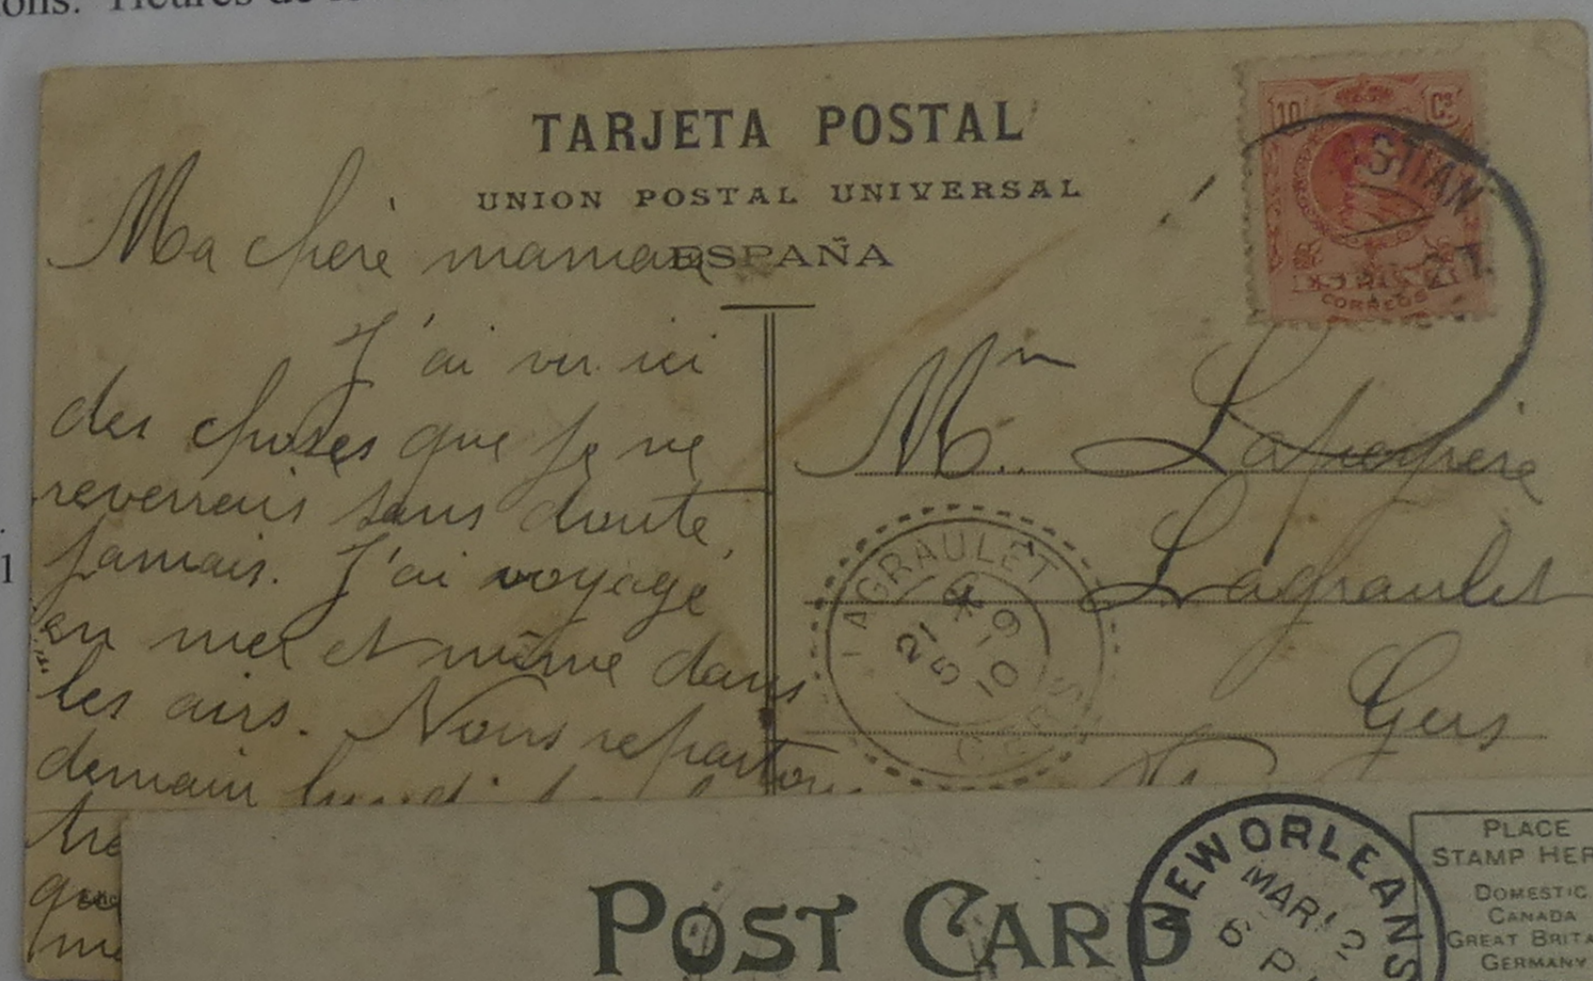 ons. Heures de
TARJETA POSTAL
UNION POSTAL UNIVERSAL
ESPAÑA
10 Cs
CORREOS
STIAN
Ma chère maman
J'ai vu ici
des choses que je ne
reverrais sans doute
jamais. J'ai voyagé
en mer et même dans
les airs. Nous repartons
demain lundi
Mme
Lagraulet
Gers
LAGRAULET
6
21 - 9
5
10
GERS
1
POST CARD
NEW ORLEANS
MAR 12
6 P
PLACE
STAMP HER
DOMESTIC
CANADA
GREAT BRITA
GERMANY